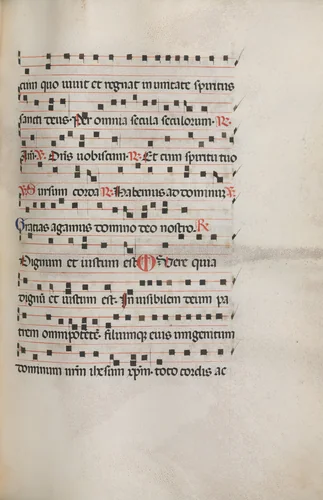 cum quo uiuit et regnat in unitate spiritus
sancti deus. Per omnia secula seculorum. R.
Am̄. V. Dn̄s uobiscum. R. Et cum spiritu tuo
V. Sursum corda R. Habemus ad dominū V.
Gratias agamus domino deo nostro. R.
Dignum et iustum est. Vere quia
dignū et iustum est. Inuisibilem deum pa
trem omnipotētē. filiumque eius unigenitum
dominum nr̄m ihesum xp̄m. toto cordis ac